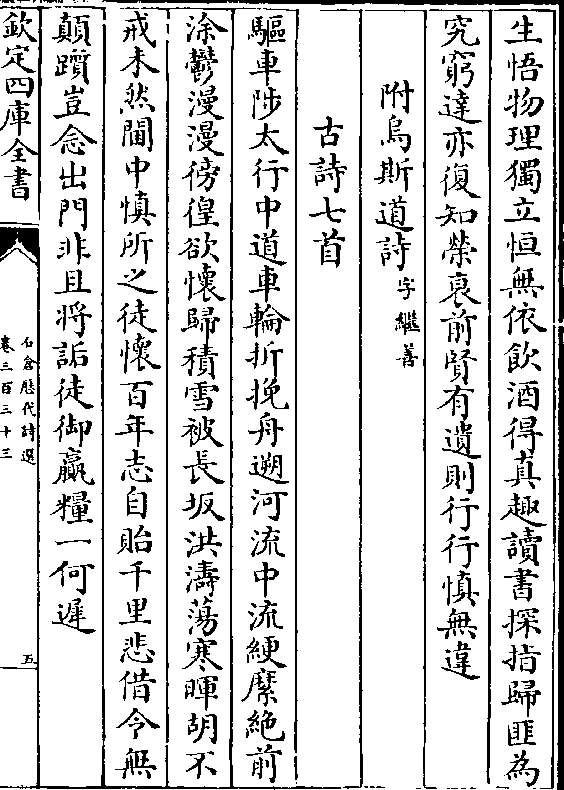 生悟物理獨立恒無依飲酒得真趣讀書探指歸匪為
究窮達亦復知榮衰前賢有遺則行行慎無違
附烏斯道詩字繼善
古詩七首
驅車陟太行中道車輪折挽舟遡河流中流綆縻絶前
涂鬱漫漫徬徨欲懷歸積雪被長坂洪濤蕩寒暉胡不
戒未然閫中慎所之徒懷百年志自貽千里悲借令無
顛躓豈念出門非且將詬徒御贏糧一何遲
欽定四庫全書
石倉歷代詩選
卷三百三十三
五